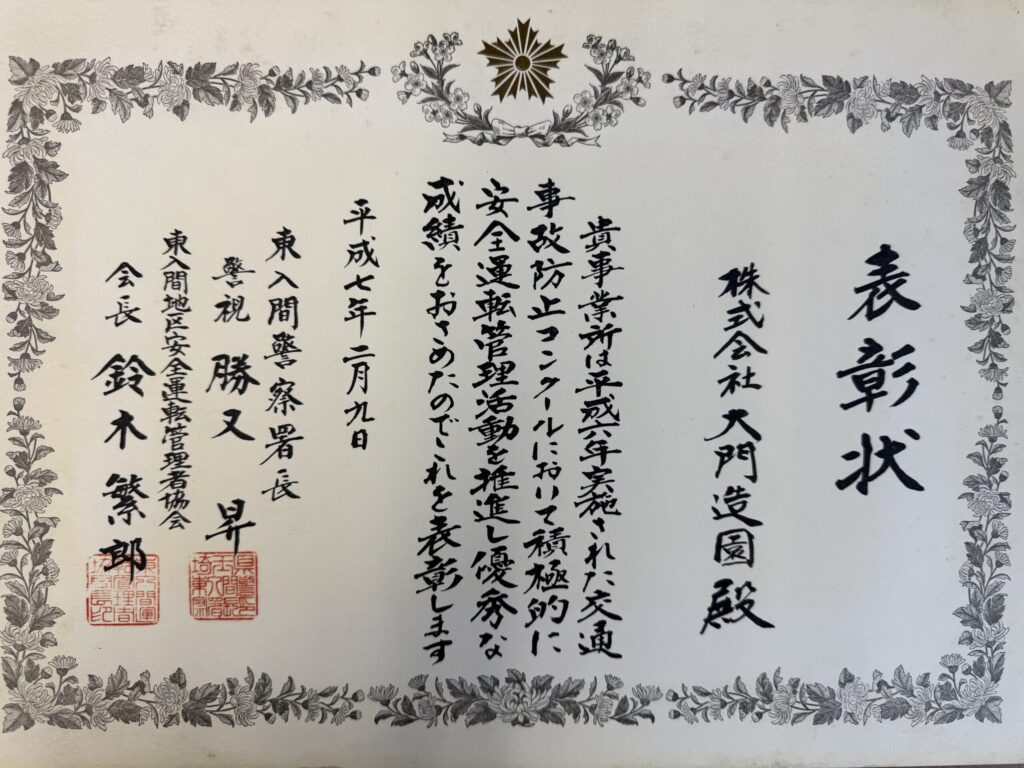 表彰状
株式会社大門造園殿
貴事業所は平成六年実施された交通
事故防止コンクールにおいて積極的に
安全運転管理活動を推進し優秀な
成績をおさめたのでこれを表彰します
平成七年二月九日
東入間警察署長
警視 勝又 昇
東入間地区安全運転管理者協会
会長 鈴木繁郎